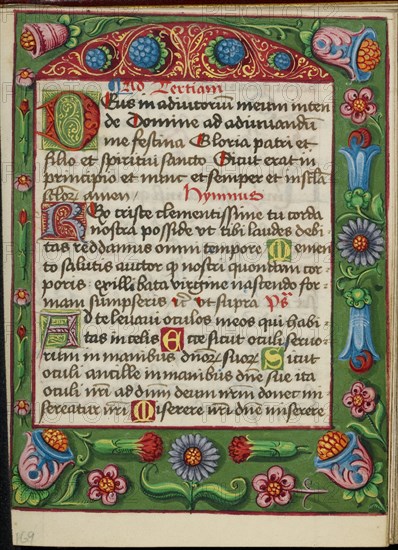 Ad Tertiam
Deus in adiutorium meum inten
de Domine ad adiuuandū
me festina Gloria patri et
filio et spiritui sancto Sicut erat in
principio et nunc et semper et in sēla
sēlor amen Hymnus
Rex criste clementissime tu corda
nostra posside vt tibi laudes debi
tas reddamus omni tempore Memen
to salutis auctor q nostri quondam cor
poris ex illibata virgine nascendo for
mam sumpseris vt supra Ps
Ad te leuaui oculos meos qui habi
tas in celis Ecce sicut oculi seruo
rum in manibus dnor suor Sicut
oculi ancille in manibus dne sue ita
oculi nri ad dnm deum nrm donec mi
sereatur nri Miserere nri dne miserere
169